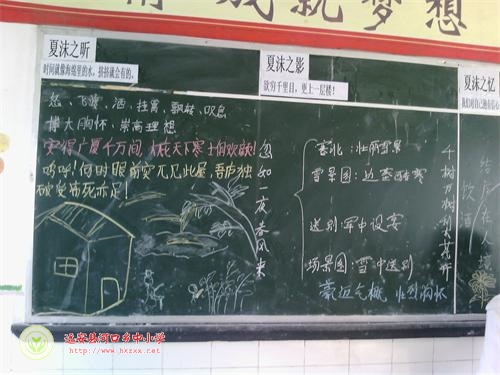 成就梦想
夏沫之昕
时间就像海绵里的水，挤挤就会有的。
怒、飞
洒、挂罥、飘转、叹息
博大胸怀、崇高理想
安得广厦千万间，大庇天下寒士俱欢颜！
呜呼！何时眼前突兀见此屋，吾庐独
破受冻死亦足！
忽如一夜春风来
夏沫之影
欲穷千里目，更上一层楼！
塞北：壮丽雪景
雪景图：边塞酷寒
送别：军中设宴
场景图：雪中送别
豪迈气概 壮烈胸怀
千树万树梨花开
夏沫之忆
饮酒
结庐在人境
远安县河口乡中小学
http://www.hxzxx.net